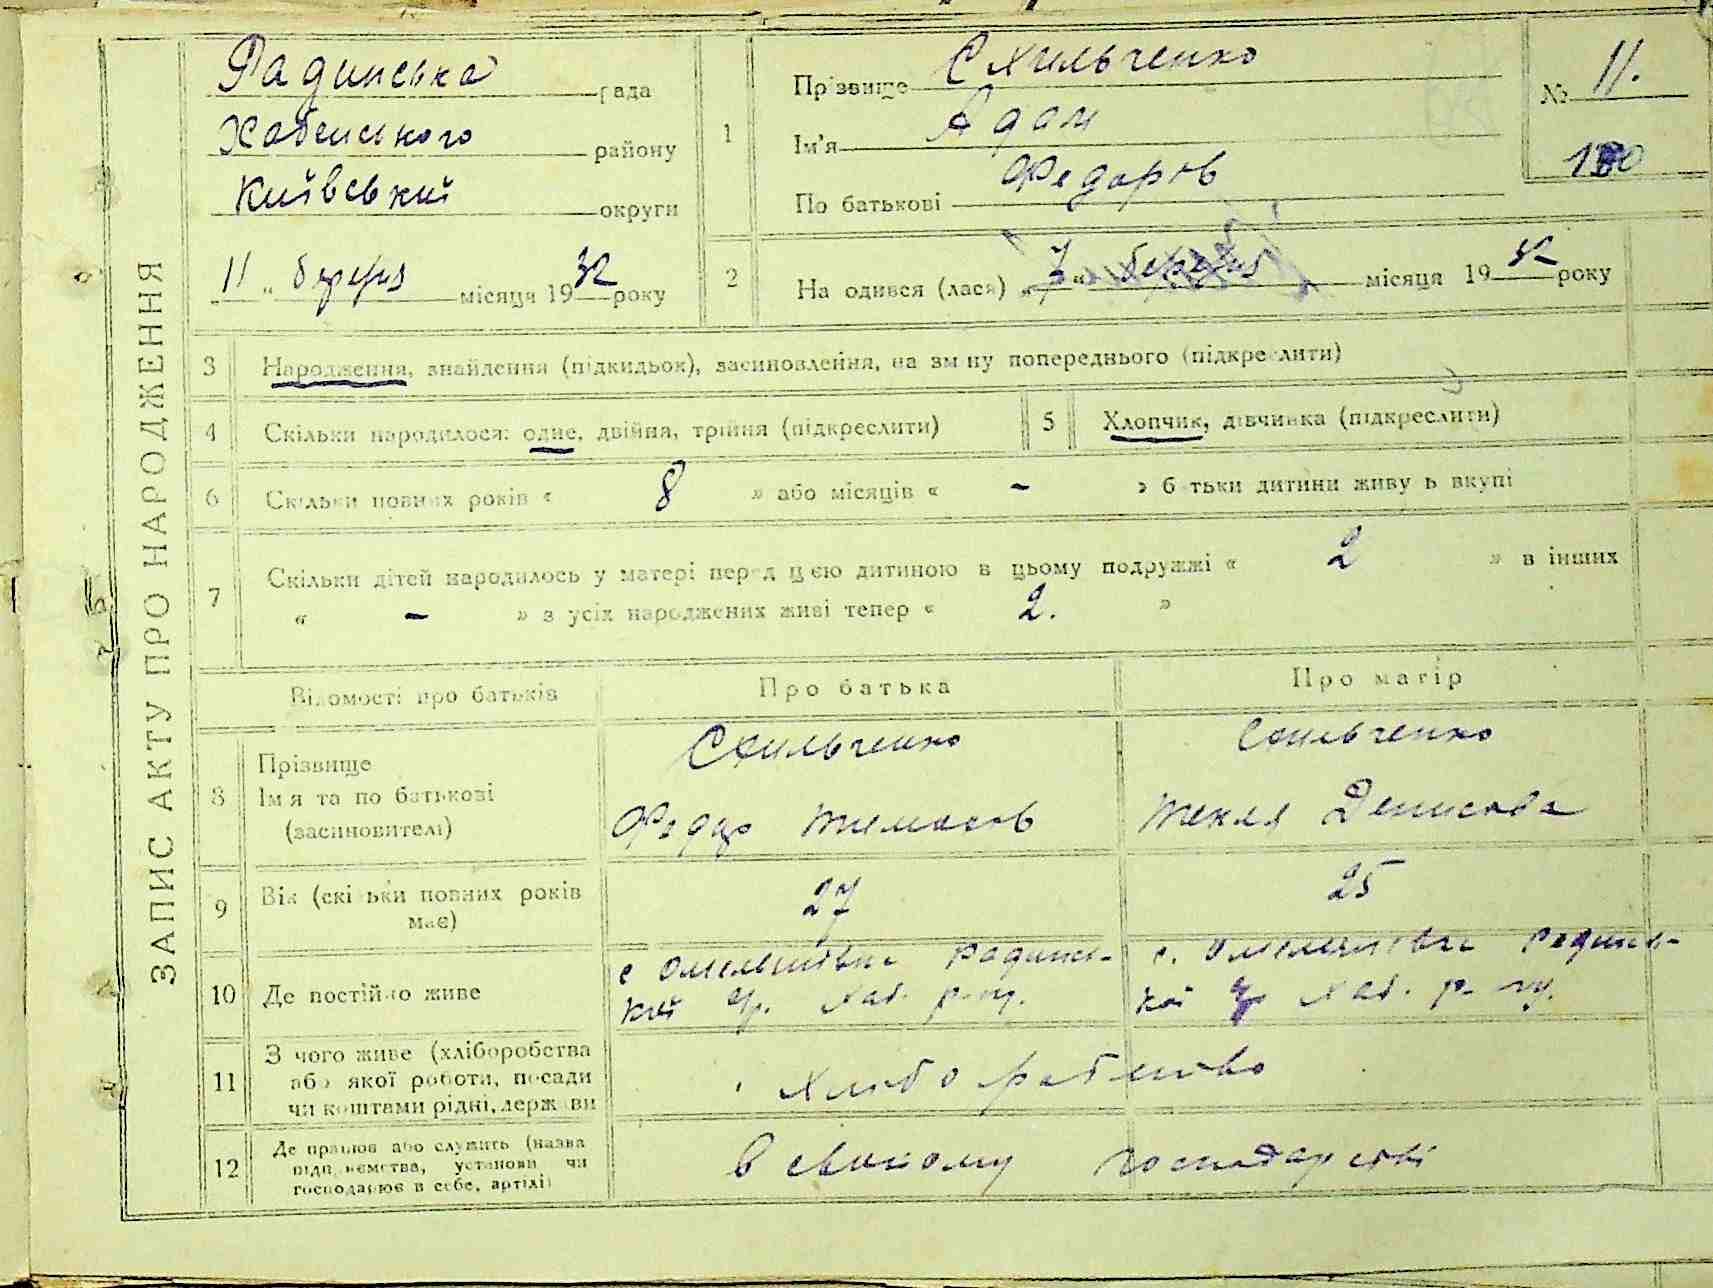 ЗАПИС АКТУ ПРО НАРОДЖЕННЯ
Радинська рада
Хабенського району
Київський округи
11 „ березня місяця 1932 року
1
Прізвище Схильченко
Ім'я Адам
По батькові Федоров
№ 11.
2
На одився (лася) „ 7 “ березня місяця 1932 року
3 Народження, знайдення (підкидьок), засиновлення, на зміну попереднього (підкреслити)
4 Скільки народилося: одне, двійня, трійня (підкреслити)
5 Хлопчик, дівчинка (підкреслити)
6 Скільки повних років « 8 » або місяців « - » батьки дитини живуть вкупі
7 Скільки дітей народилось у матері перед цією дитиною в цьому подружжі « 2 » в інших
« - » з усіх народжених живі тепер « 2. »
Відомості про батьків
Про батька
Про матір
8 Прізвище
Ім я та по батькові
(засиновителі)
Схильченко
Федір Тимохов
Схильченко
Текля Денисова
9 Вік (скільки повних років
має)
27
25
10 Де постійно живе
с Омельянівка Радинсь-
кої с/р. Хаб. р-ну.
с. Омелянівка Радинсь-
кої с/р Хаб. р-ну.
11 З чого живе (хліборобства
або якої роботи, посади
чи коштами рідні, держави
хліборобство
12 Де працює або служить (назва
підприємства, установи чи
господарює в себе, артілі)
в своєму господарстві